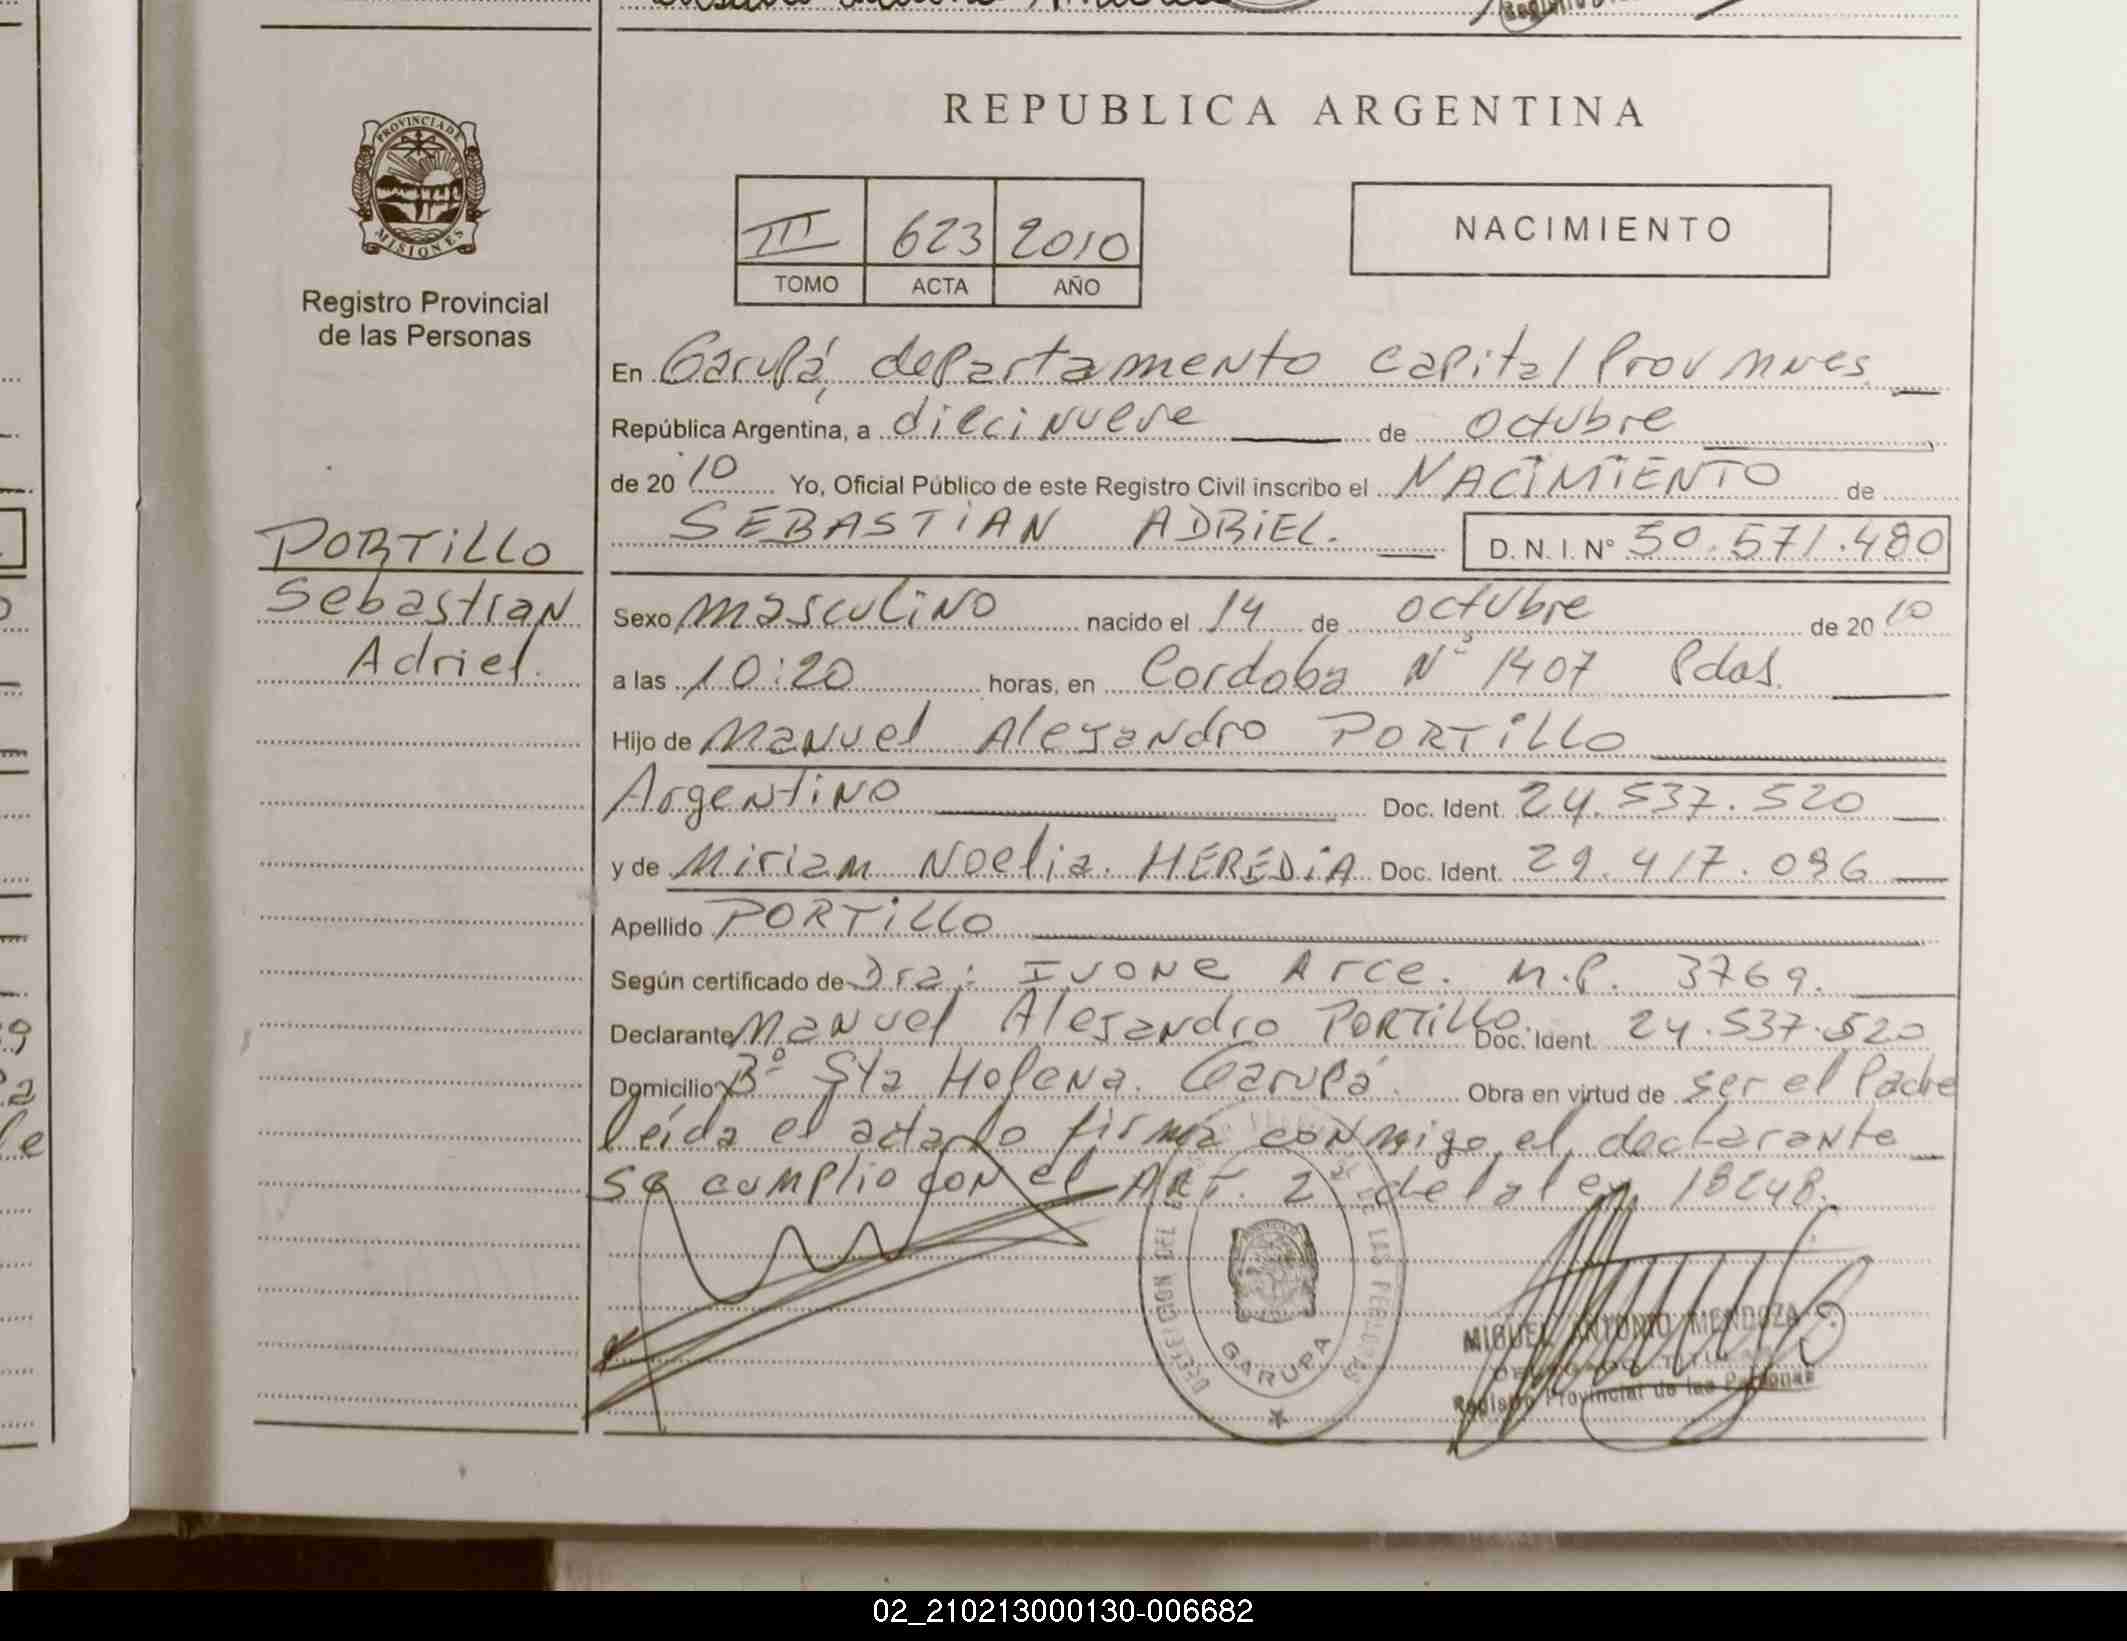 REPUBLICA ARGENTINA
PROVINCIA DE
MISIONES
Registro Provincial
de las Personas
III 623 2010
TOMO ACTA AÑO
NACIMIENTO
En Garupá, departamento Capital Prov Mnes
República Argentina, a diecinueve de octubre
de 20 10 Yo, Oficial Público de este Registro Civil inscribo el NACIMIENTO de
SEBASTIAN ADRIEL. D. N. I. Nº 50.571.480
PORTILLO
Sebastian
Adriel.
Sexo masculino nacido el 14 de octubre de 20 10
a las 10:20 horas, en Cordoba Nº 1407 Pdas.
Hijo de Manuel Alejandro PORTILLO
Argentino Doc. Ident. 24.537.520
y de Miriam Noelia. HEREDIA Doc. Ident. 29.417.096
Apellido PORTILLO
Según certificado de Dra: Ivone Arce. M.P. 3769.
Declarante Manuel Alejandro PORTILLO. Doc. Ident. 24.537.520
Domicilio Bº Sta Helena. Garupá. Obra en virtud de ser el Padre
leída el acta lo firma conmigo el declarante
se cumplio con el ART. 2º de la ley 18248.
GARUPA
MIGUEL ANTONIO MENDOZA
Registro Provincial de las Personas
02_210213000130-006682